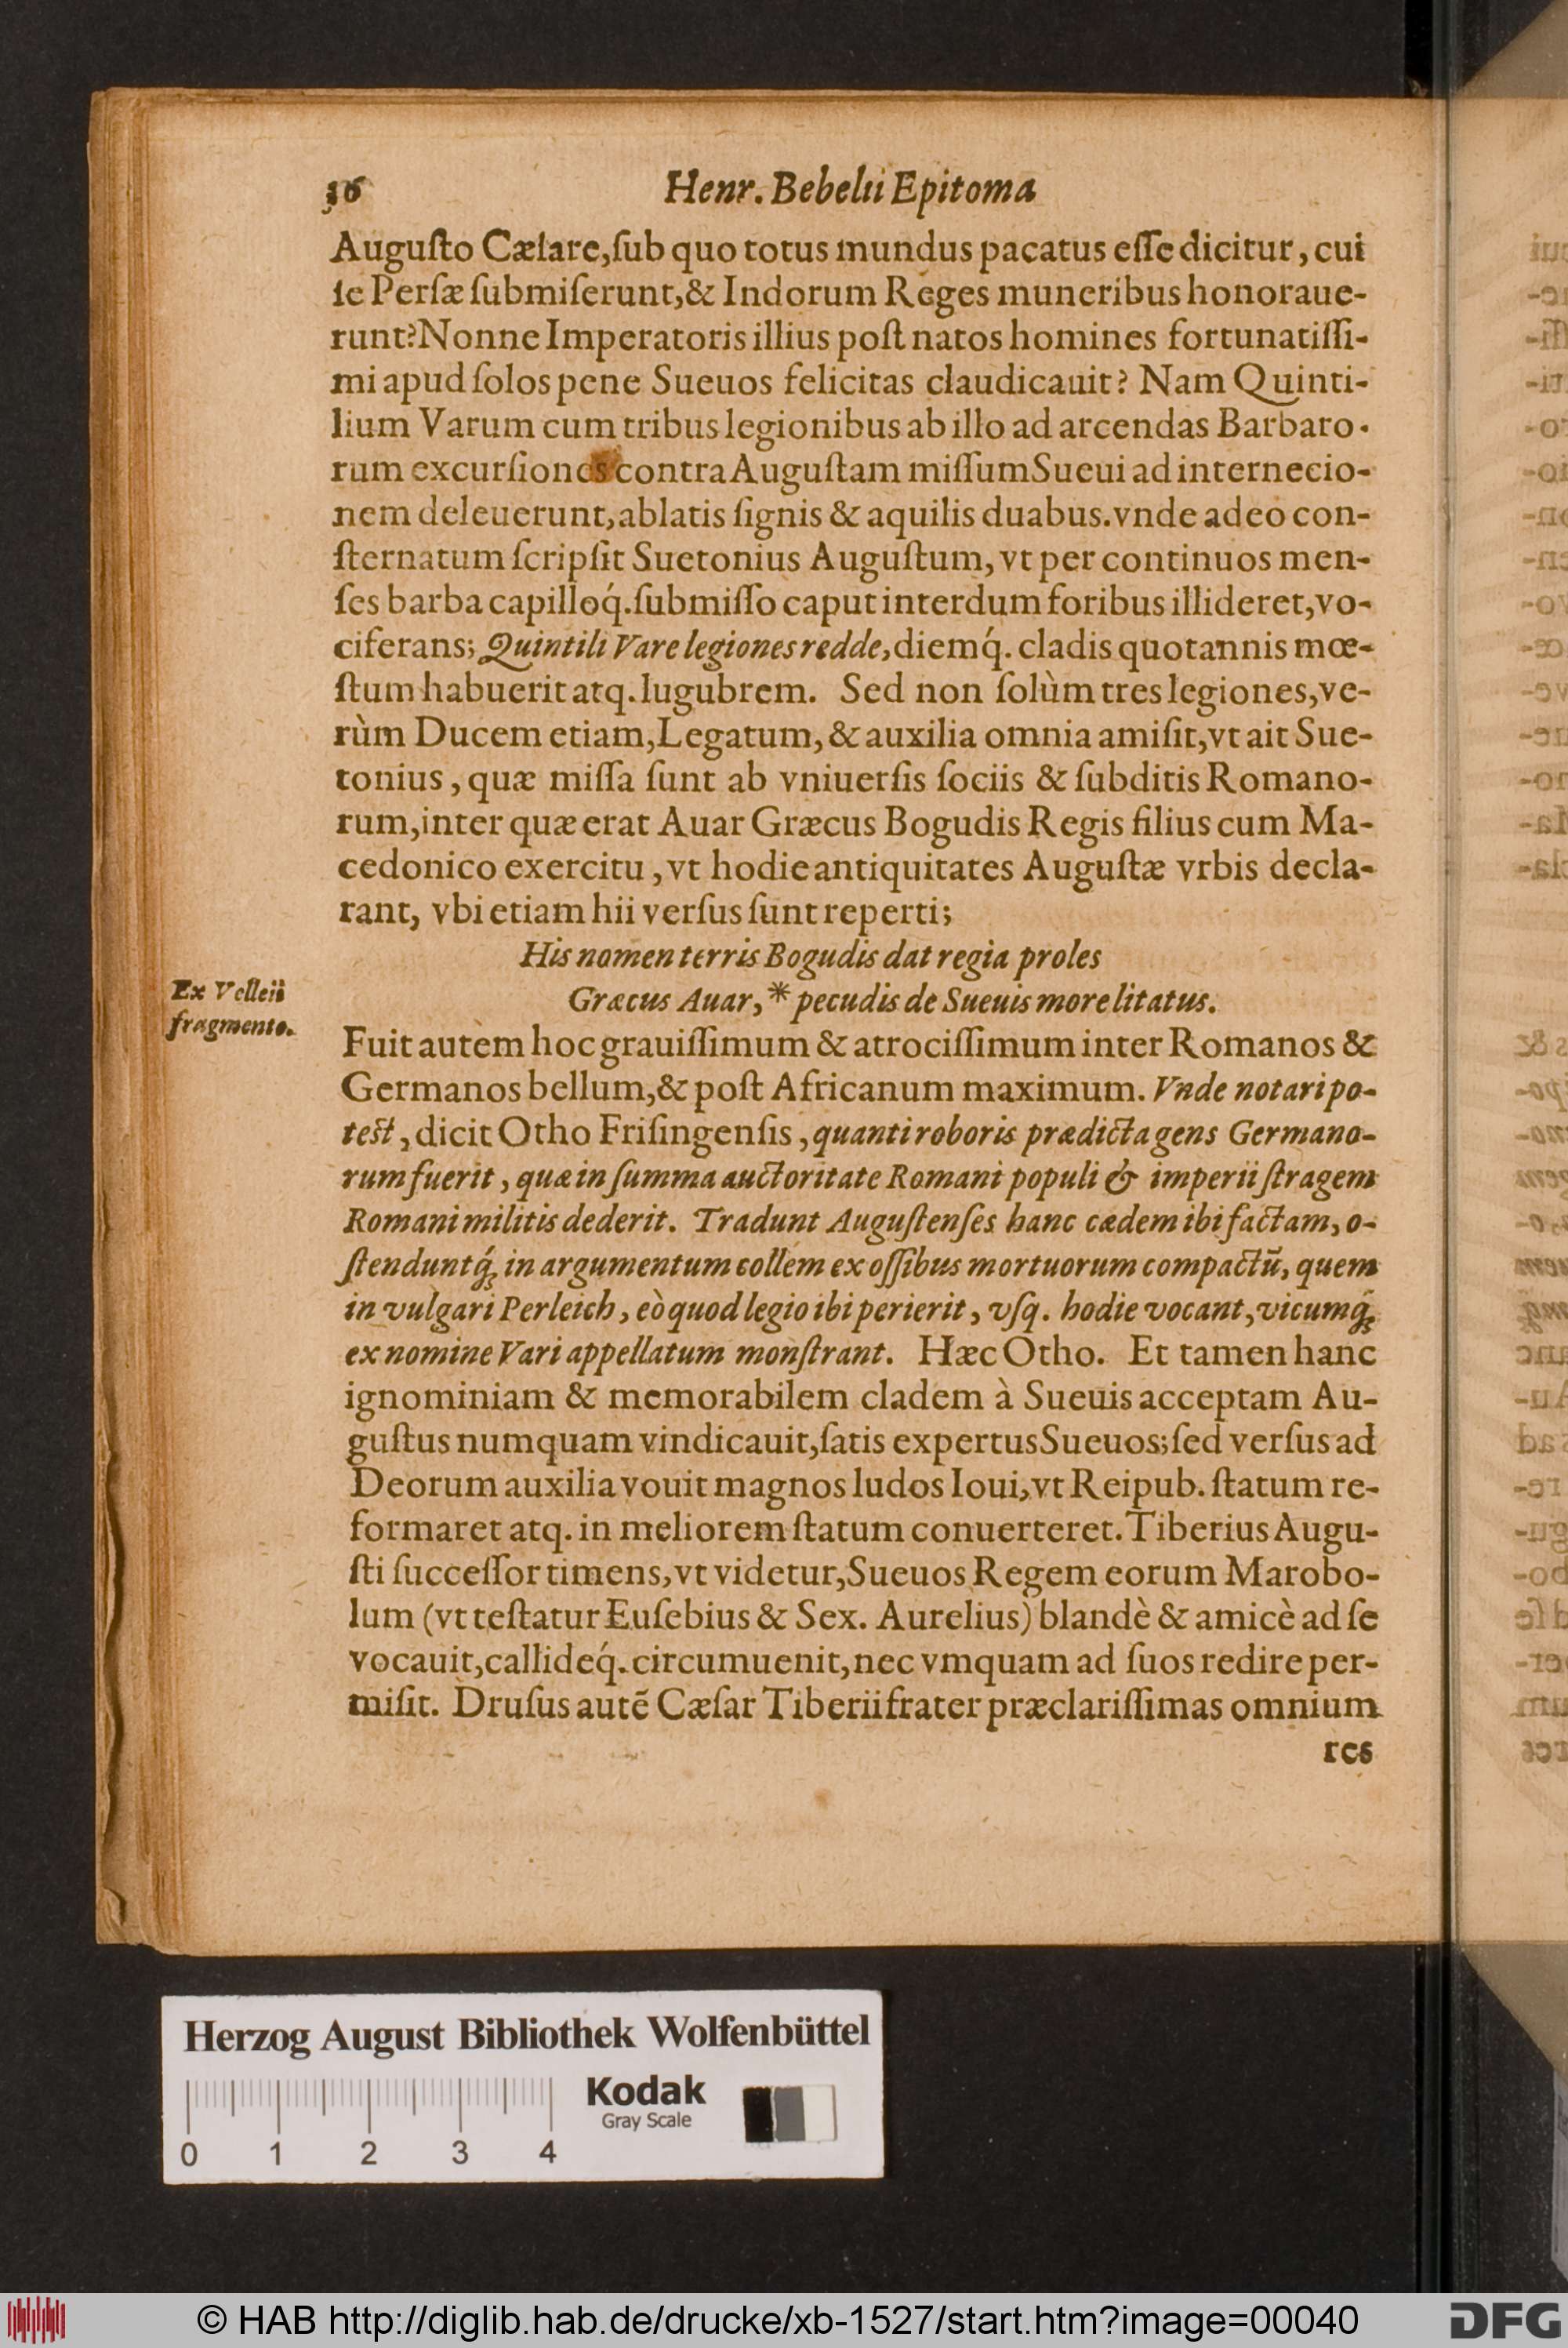 36 Henr. Bebelii Epitoma
Auguſto Cæſare,ſub quo totus mundus pacatus eſſe dicitur, cui
ſe Perſæ ſubmiſerunt,& Indorum Reges muneribus honoraue-
runt?Nonne Imperatoris illius poſt natos homines fortunatiſſi-
mi apud ſolos pene Sueuos felicitas claudicauit? Nam Quinti-
lium Varum cum tribus legionibus ab illo ad arcendas Barbaro-
rum excurſiones contra Auguſtam miſſum Sueui ad internecio-
nem deleuerunt,ablatis ſignis & aquilis duabus.vnde adeò con-
ſternatum ſcripſit Suetonius Auguſtum, vt per continuos men-
ſes barba capilloq́.ſubmiſſo caput interdum foribus illideret,vo-
ciferans; Quintili Vare legiones redde,diemq́. cladis quotannis mœ-
ſtum habuerit atq.lugubrem. Sed non ſolùm tres legiones,ve-
rùm Ducem etiam,Legatum,& auxilia omnia amiſit,vt ait Sue-
tonius, quæ miſſa ſunt ab vniuerſis ſociis & ſubditis Romano-
rum,inter quæ erat Auar Græcus Bogudis Regis filius cum Ma-
cedonico exercitu, vt hodie antiquitates Auguſtæ vrbis decla-
rant, vbi etiam hii verſus ſunt reperti;
His nomen terris Bogudis dat regia proles
Græcus Auar,* pecudis de Sueuis more litatus.
Ex Velleii
fragmento.
Fuit autem hoc grauiſſimum & atrociſſimum inter Romanos &
Germanos bellum,& poſt Africanum maximum. Vnde notari po-
teſt, dicit Otho Friſingenſis, quanti roboris prædicta gens Germano-
rum fuerit, quæ in ſumma auctoritate Romani populi & imperii ſtragem
Romani militis dederit. Tradunt Auguſtenſes hanc cædem ibi factam, o-
ſtenduntq́; in argumentum collem ex oſſibus mortuorum compactū, quem
in vulgari Perleich, eò quod legio ibi perierit, vſq. hodie vocant, vicumq́;
ex nomine Vari appellatum monſtrant. Hæc Otho. Et tamen hanc
ignominiam & memorabilem cladem à Sueuis acceptam Au-
guſtus numquam vindicauit,ſatis expertus Sueuos;ſed verſus ad
Deorum auxilia vouit magnos ludos Ioui,vt Reipub. ſtatum re-
formaret atq. in meliorem ſtatum conuerteret. Tiberius Augu-
ſti ſucceſſor timens,vt videtur,Sueuos Regem eorum Marobo-
lum (vt teſtatur Euſebius & Sex. Aurelius) blandè & amicè ad ſe
vocauit,callideq́.circumuenit,nec vmquam ad ſuos redire per-
miſit. Druſus autẽ Cæſar Tiberii frater præclariſſimas omnium
res
Herzog August Bibliothek Wolfenbüttel
Kodak
Gray Scale
0 1 2 3 4
© HAB http://diglib.hab.de/drucke/xb-1527/start.htm?image=00040
DFG